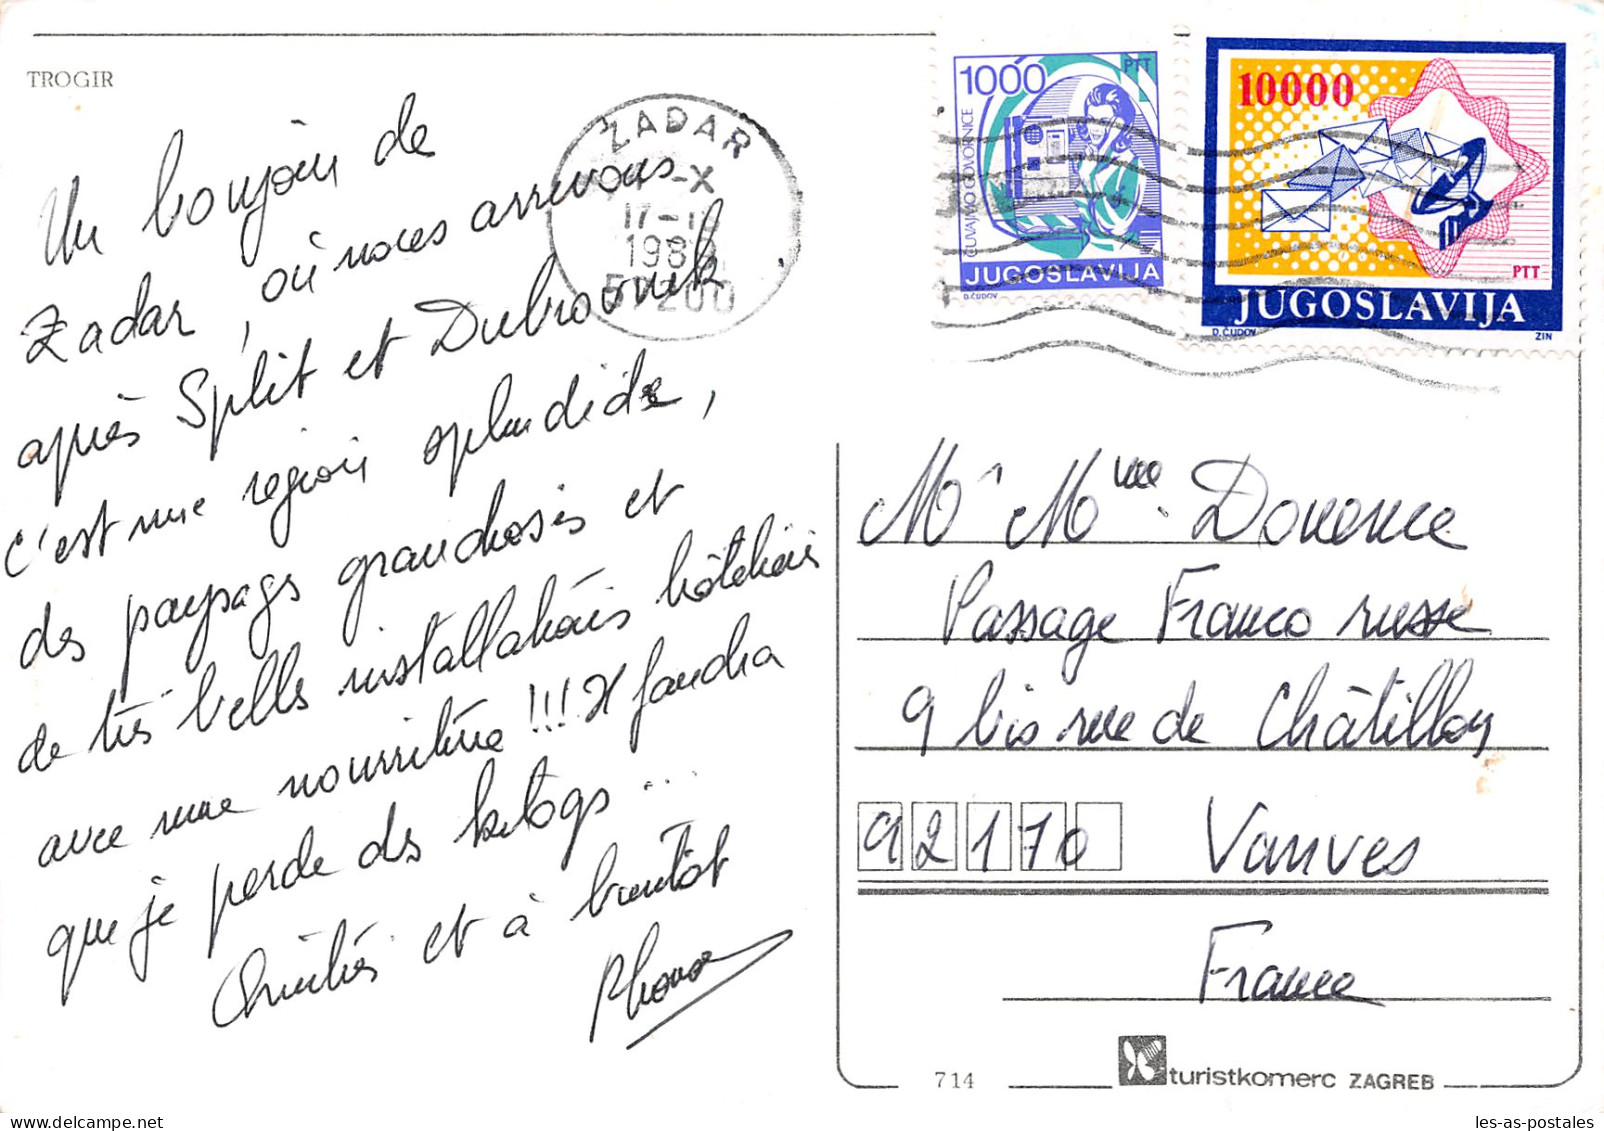 TROGIR
Un bonjour de
Zadar, où nous arrivons
après Split et Dubrovnik
c'est une région splendide,
des paysages grandioses et
de très belles installations hôtelières
avec une nourriture !!! Il faudra
que je perde des kilogs...
Amitiés et à bientôt
ZADAR
-X
17-1
198
1000
PTT
ČUVAJMO GOVORNICE
JUGOSLAVIJA
D.ČUDOV
10000
PTT
JUGOSLAVIJA
D. ČUDOV
ZIN
Mr Mme Donence
Passage Franco russe
9 bis rue de Châtillon
92170 Vanves
France
714
turistkomerc ZAGREB
les-as-postales